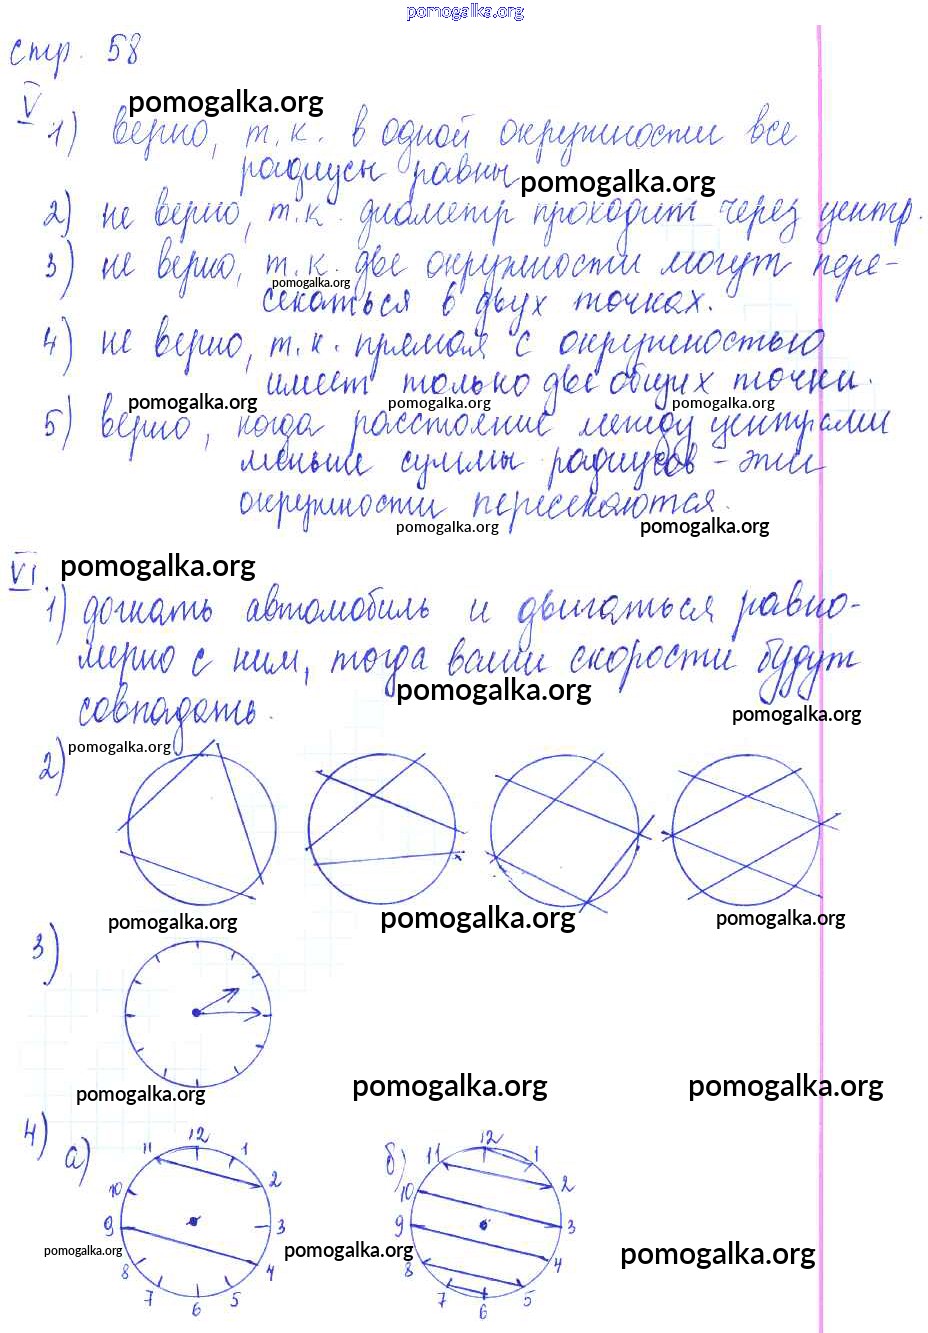 pomogalka.org
стр. 58
V pomogalka.org
1) верно, т.к. в одной окружности все
радиусы равны pomogalka.org
2) не верно, т.к. диаметр проходит через центр.
3) не верно, т.к. две окружности могут пере-
pomogalka.org
секаться в двух точках.
4) не верно, т.к. прямая с окружностью
имеет только две общих точки.
pomogalka.org pomogalka.org pomogalka.org
5) верно, когда расстояние между центрами
меньше суммы радиусов - эти
окружности пересекаются.
pomogalka.org pomogalka.org
VI. pomogalka.org
1) догнать автомобиль и двигаться равно-
мерно с ним, тогда ваши скорости будут
pomogalka.org
совпадать. pomogalka.org
2) pomogalka.org
pomogalka.org pomogalka.org pomogalka.org
3)
pomogalka.org pomogalka.org pomogalka.org
4) а) 11 12 1 2 3 4 5 6 7 8 9 10
б) 11 12 1 2 3 4 5 6 7 8 9 10
pomogalka.org pomogalka.org pomogalka.org